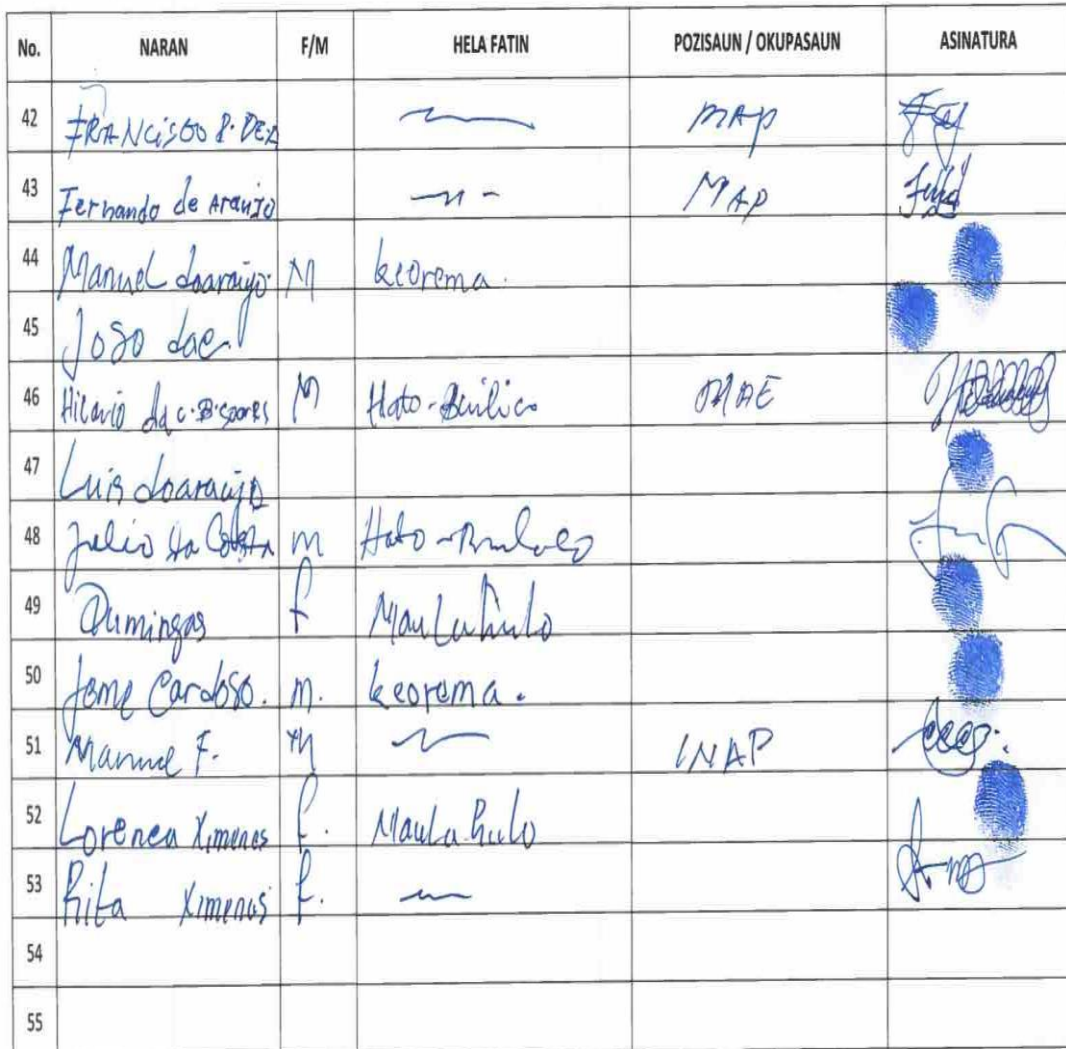 No. NARAN F/M HELA FATIN POZISAUN / OKUPASAUN ASINATURA
42 FRANCISCO MAP
43 Fernando de Araujo MAP
44 Manuel doaraujo M Leorema.
45 Joso
46 Hilario da C. B. Soares M Hato-Builico MAE
47 Luis doaraujo
48 Julio da Costa m Hato-Builico
49 Dumingas f
50 Cardoso. m. Leorema.
51 Manuel F. M INAP
52 Lorenca Ximenes f.
53 Rita Ximenes f.
54
55